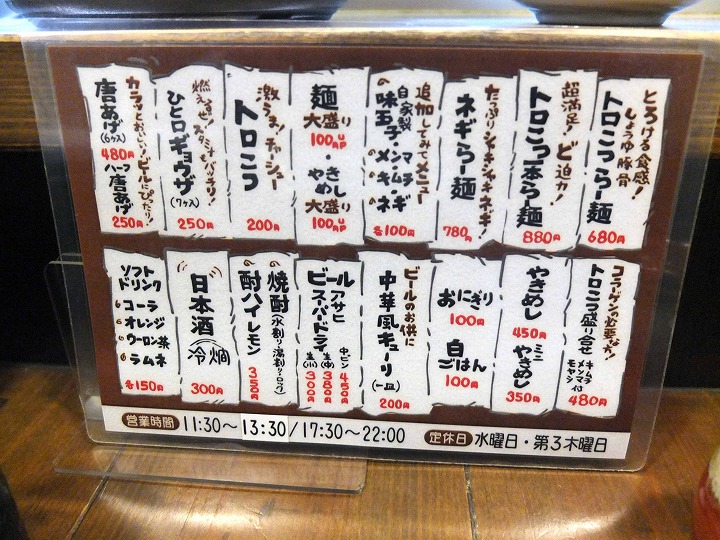 とろける食感!
しょうゆ豚骨
トロこつらー麺
680円
超満足!ど迫力!
トロこつ一本らー麺
880円
たっぷりシャキシャキネギ!
ネギらー麺
780円
追加してみてメニュー
自家製
味玉子・メンマ
・キムチ
・ネギ
各100円
麺
大盛り
100円UP
・
やきめし
大盛り
100円UP
激うま!チャーシュー
トロこつ
200円
ひと口ギョウザ
(7ヶ入)
250円
カラッとおいしい!ビールにぴったり!
唐あげ
(6ヶ入)
480円
ハーフ
唐あげ
250円
コラーゲンの必要な方!
トロこつ盛り合せ
キムチ
メンマ
モヤシ
付
480円
やきめし
450円
ミニ
やきめし
350円
おにぎり
100円
白
ごはん
100円
ビールのお供に
中華風キューリ
(一皿)
200円
ビール
アサヒ
スーパードライ
中ビン 450円
生(中) 380円
生(小) 300円
焼酎
(水割り・湯割り・ロック)
酎ハイレモン
350円
日本酒
冷 燗
300円
ソフト
ドリンク
コーラ
オレンジ
ウーロン茶
ラムネ
各150円
営業時間 11:30～13:30/17:30～22:00 定休日 水曜日・第3木曜日